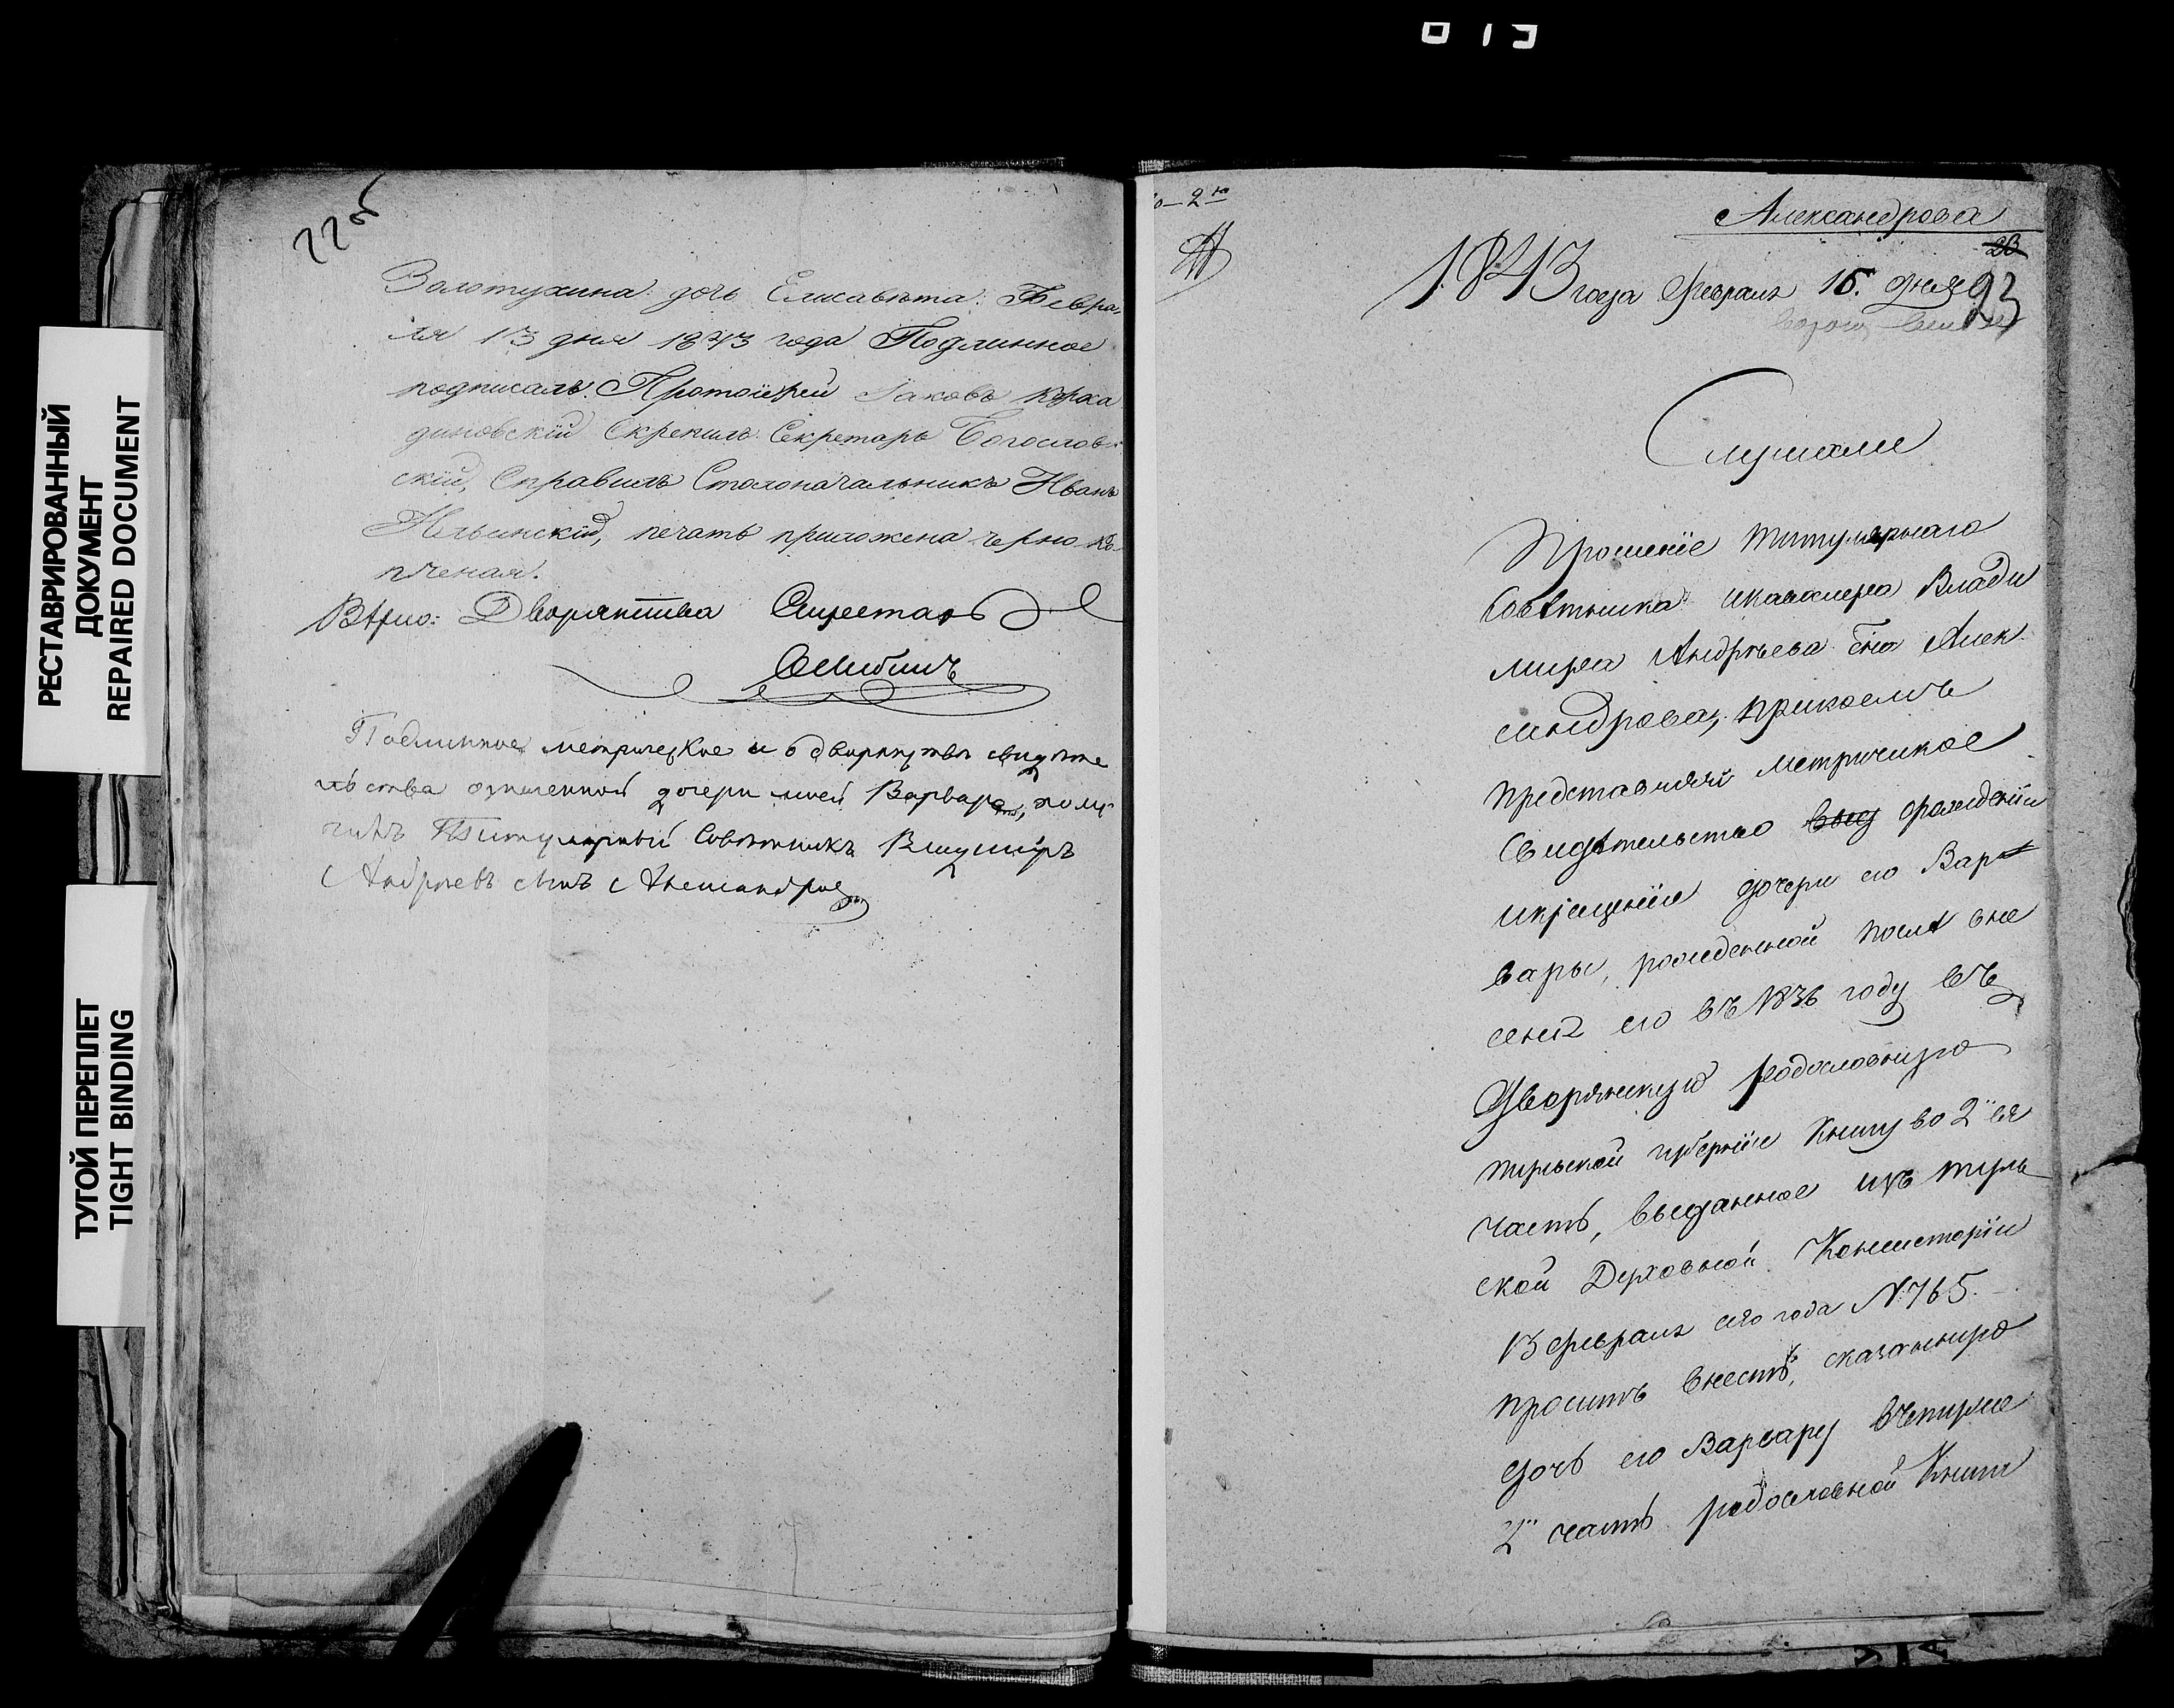 013
РЕСТАВРИРОВАННЫЙ
ДОКУМЕНТ
REPAIRED DOCUMENT
ТУГОЙ ПЕРЕПЛЕТ
TIGHT BINDING
22об
Золотухина дочь Елисавета: Февра-
ля 13 дня 1843 года Подлинное
подписалъ: Протоіерей Іаковъ Карка
диновскій Скрепилъ Секретарь Богослов-
скій, Справилъ Столоначальникъ Иванъ
Ильинскій, печать приложена черно ко-
пченая.
Вѣрно: Дворянства Секретарь
Подлинное метрическое и о дворянствѣ свидѣте
льства означенной дочери моей Варвары, полу-
чилъ Титулярный Совѣтникъ Владиміръ
Андреевъ сынъ Александровъ
о-2ю
Александрова
23
1843 года Февраля 15. дня
23
Слушали
Прошеніе титулярнаго
Совѣтника икавалера Влади
мира Андрѣева Сна Алек
сандрова, прикоемъ
представляя метрическое
Свидѣтельство выд орожденіи
икрещеніи дочери его Вар
вары, рожденной послѣ вне
сенія его въ 1836 году въ
Дворянскую родословную
тульской губерніи Книгу во 2ю ея
часть, выданное изъ туль
ской Духовной Консисторіи
13 февраля сего года №765.
проситъ внесть, сказанную
дочь его Варвару втуже
2ю часть родословной Книги